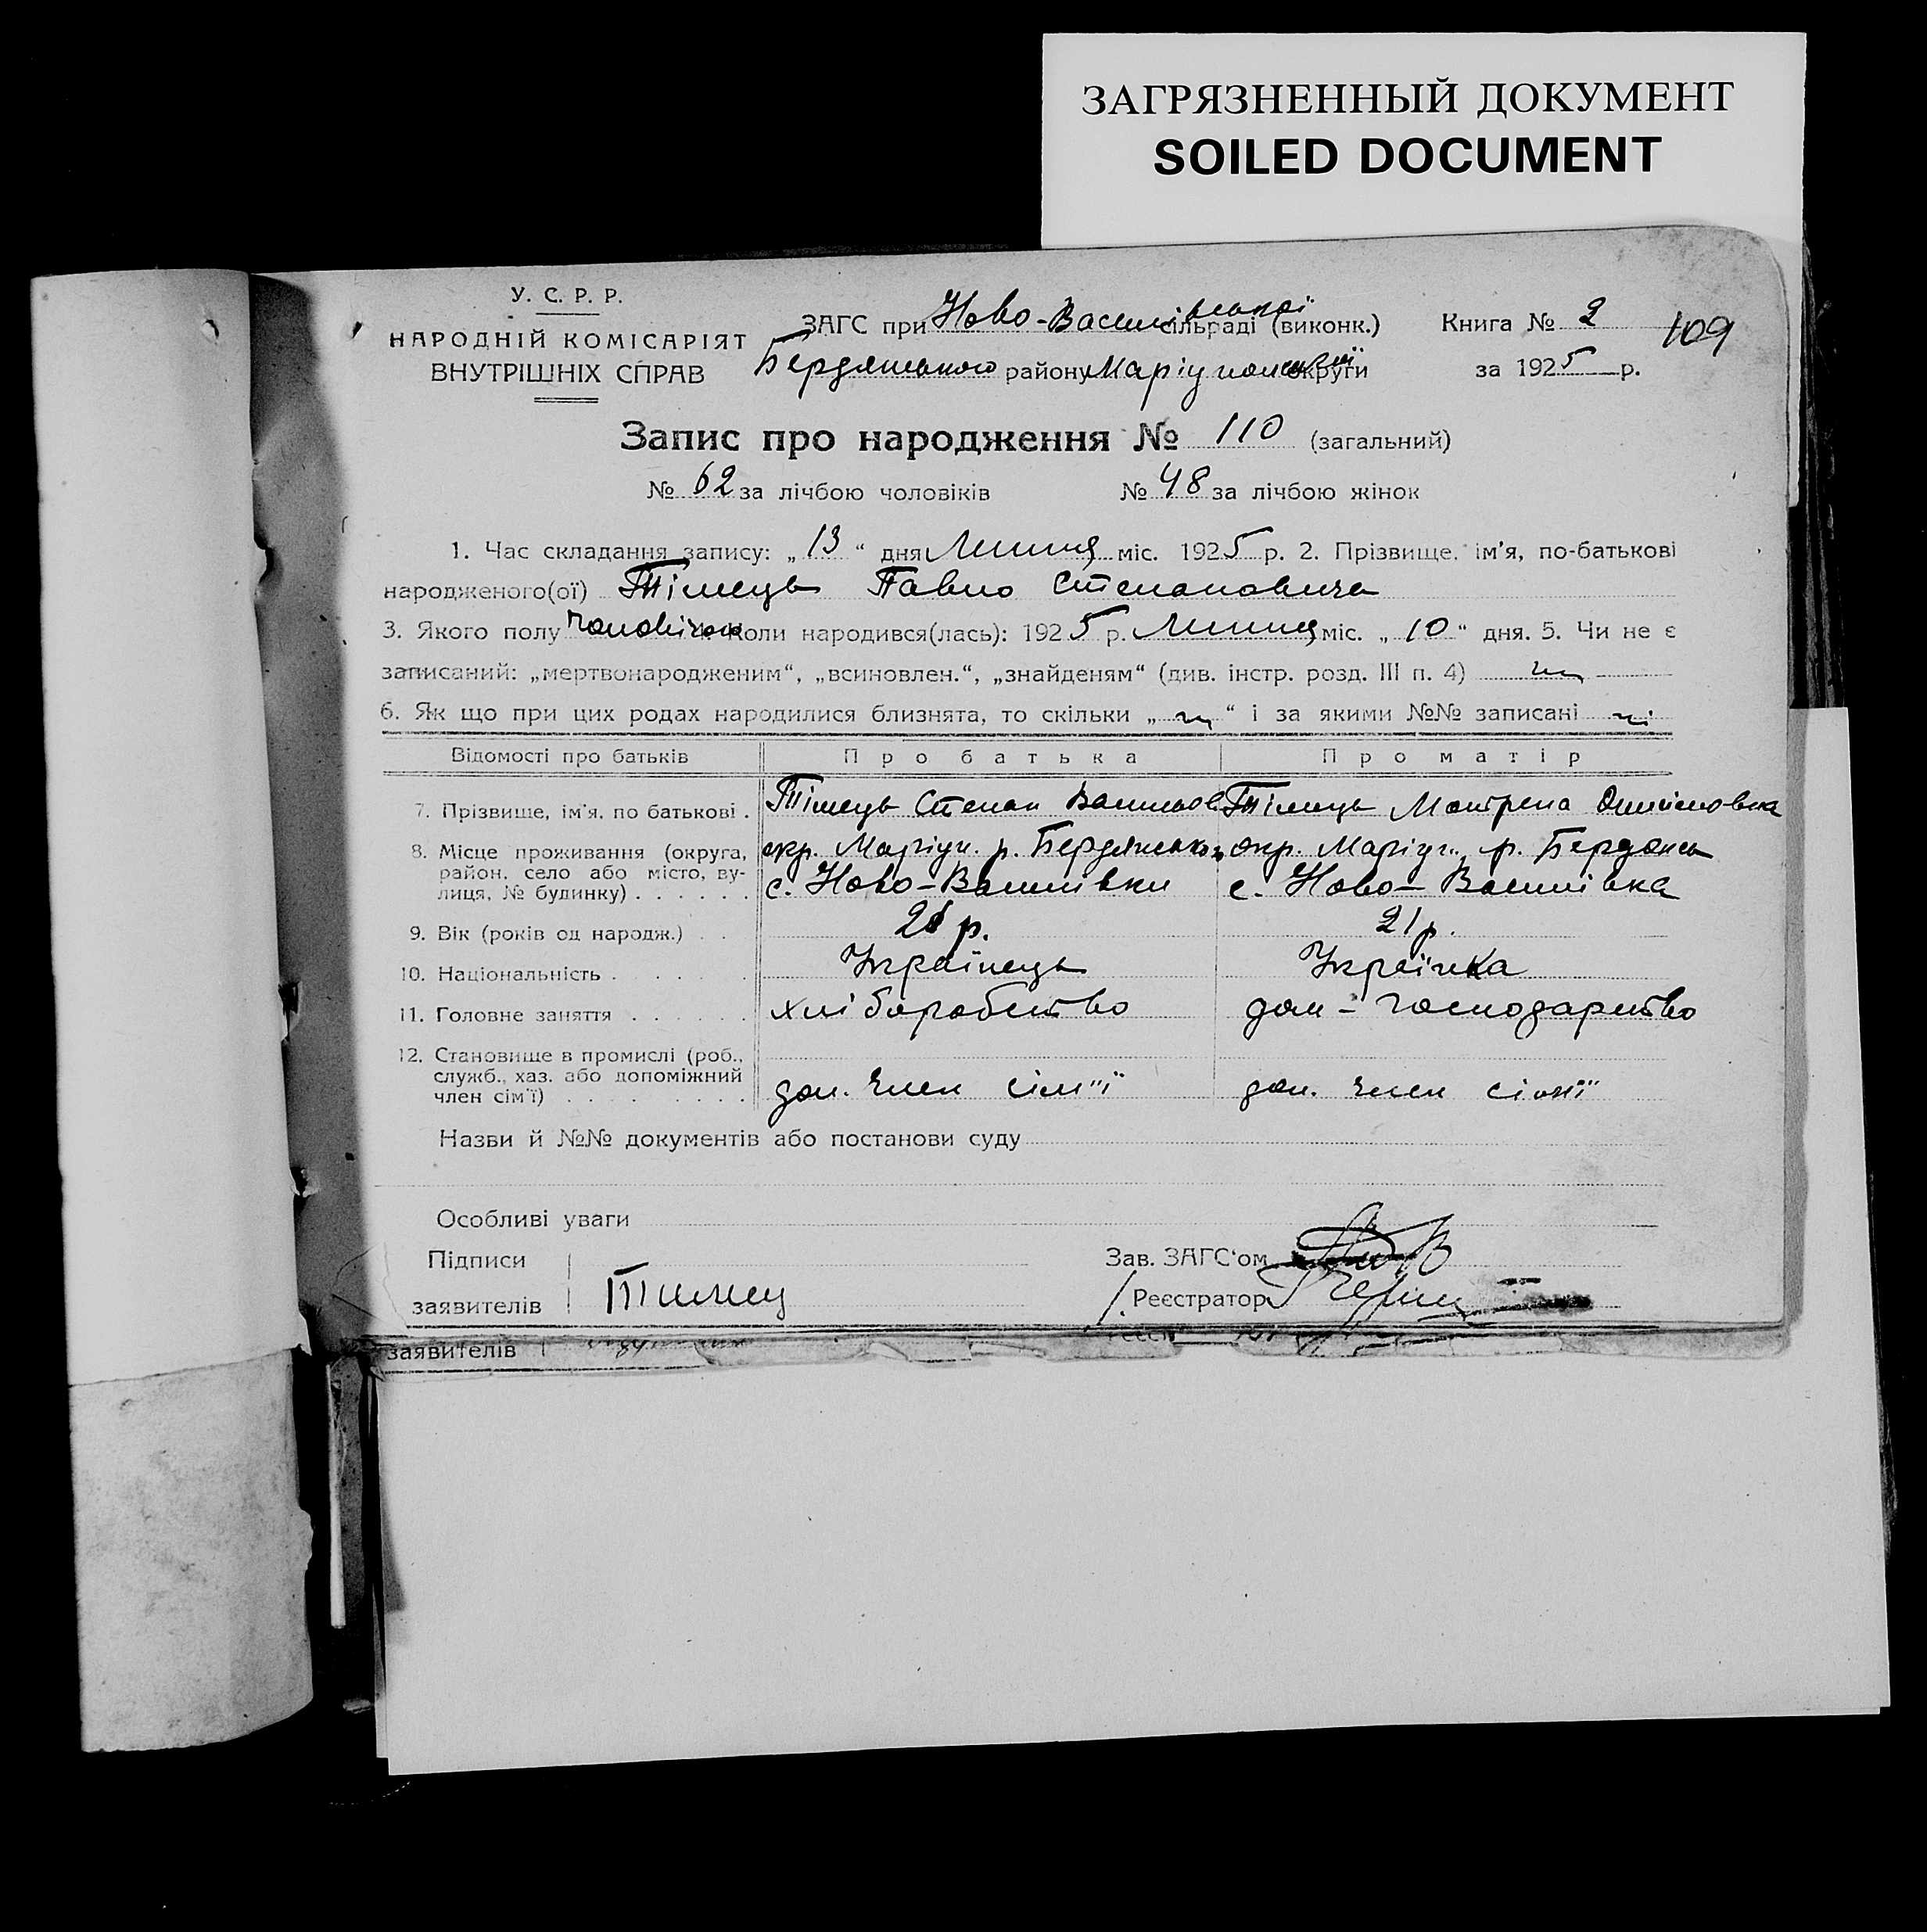 ЗАГРЯЗНЕННЫЙ ДОКУМЕНТ
SOILED DOCUMENT
У. С. Р. Р.
НАРОДНІЙ КОМІСАРІЯТ
ВНУТРІШНІХ СПРАВ
ЗАГС при Ново-Василівської сільраді (виконк.)
Бердянського району Маріупольської округи
Книга № 2
109
за 1925 р.
Запис про народження № 110 (загальний)
№ 62 за лічбою чоловіків № 48 за лічбою жінок
1. Час складання запису: „13“ дня Липця міс. 1925 р. 2. Прізвище, ім'я, по-батькові
народженого(ої) Тімець Павло Степановича
3. Якого полу 4. Коли народився(лась): 1925 р. Липця міс. „10“ дня. 5. Чи не є
записаний: „мертвонародженим“, „всиновлен.“, „знайденям“ (див. інстр. розд. III п. 4) ні
6. Як що при цих родах народилися близнята, то скільки „ні“ і за якими №№ записані ні
Відомості про батьків Про батька Про матір
7. Прізвище, ім'я, по батькові . Тімець Степан Васильов Тімець Мотрена
8. Місце проживання (округа, район, село або місто, вулиця, № будинку) . . . . . .
окр. Маріуп. р. Бердянськ, окр. Маріуп., р. Бердянськ
с. Ново-Василівки с. Ново-Василівка
9. Вік (років од народж.) . . 21 р. 21 р.
10. Національність . . . . Українець Українка
11. Головне заняття . . . . . . хліборобство дом-господарство
12. Становище в промислі (роб., служб., хаз. або допоміжний член сім'ї) . . . . . . . . .
доп. член сім"ї доп. член сім"ї
Назви й №№ документів або постанови суду
Особливі уваги
Підписи
заявителів Тимец
Зав. ЗАГС'ом
Реєстратор
заявителів